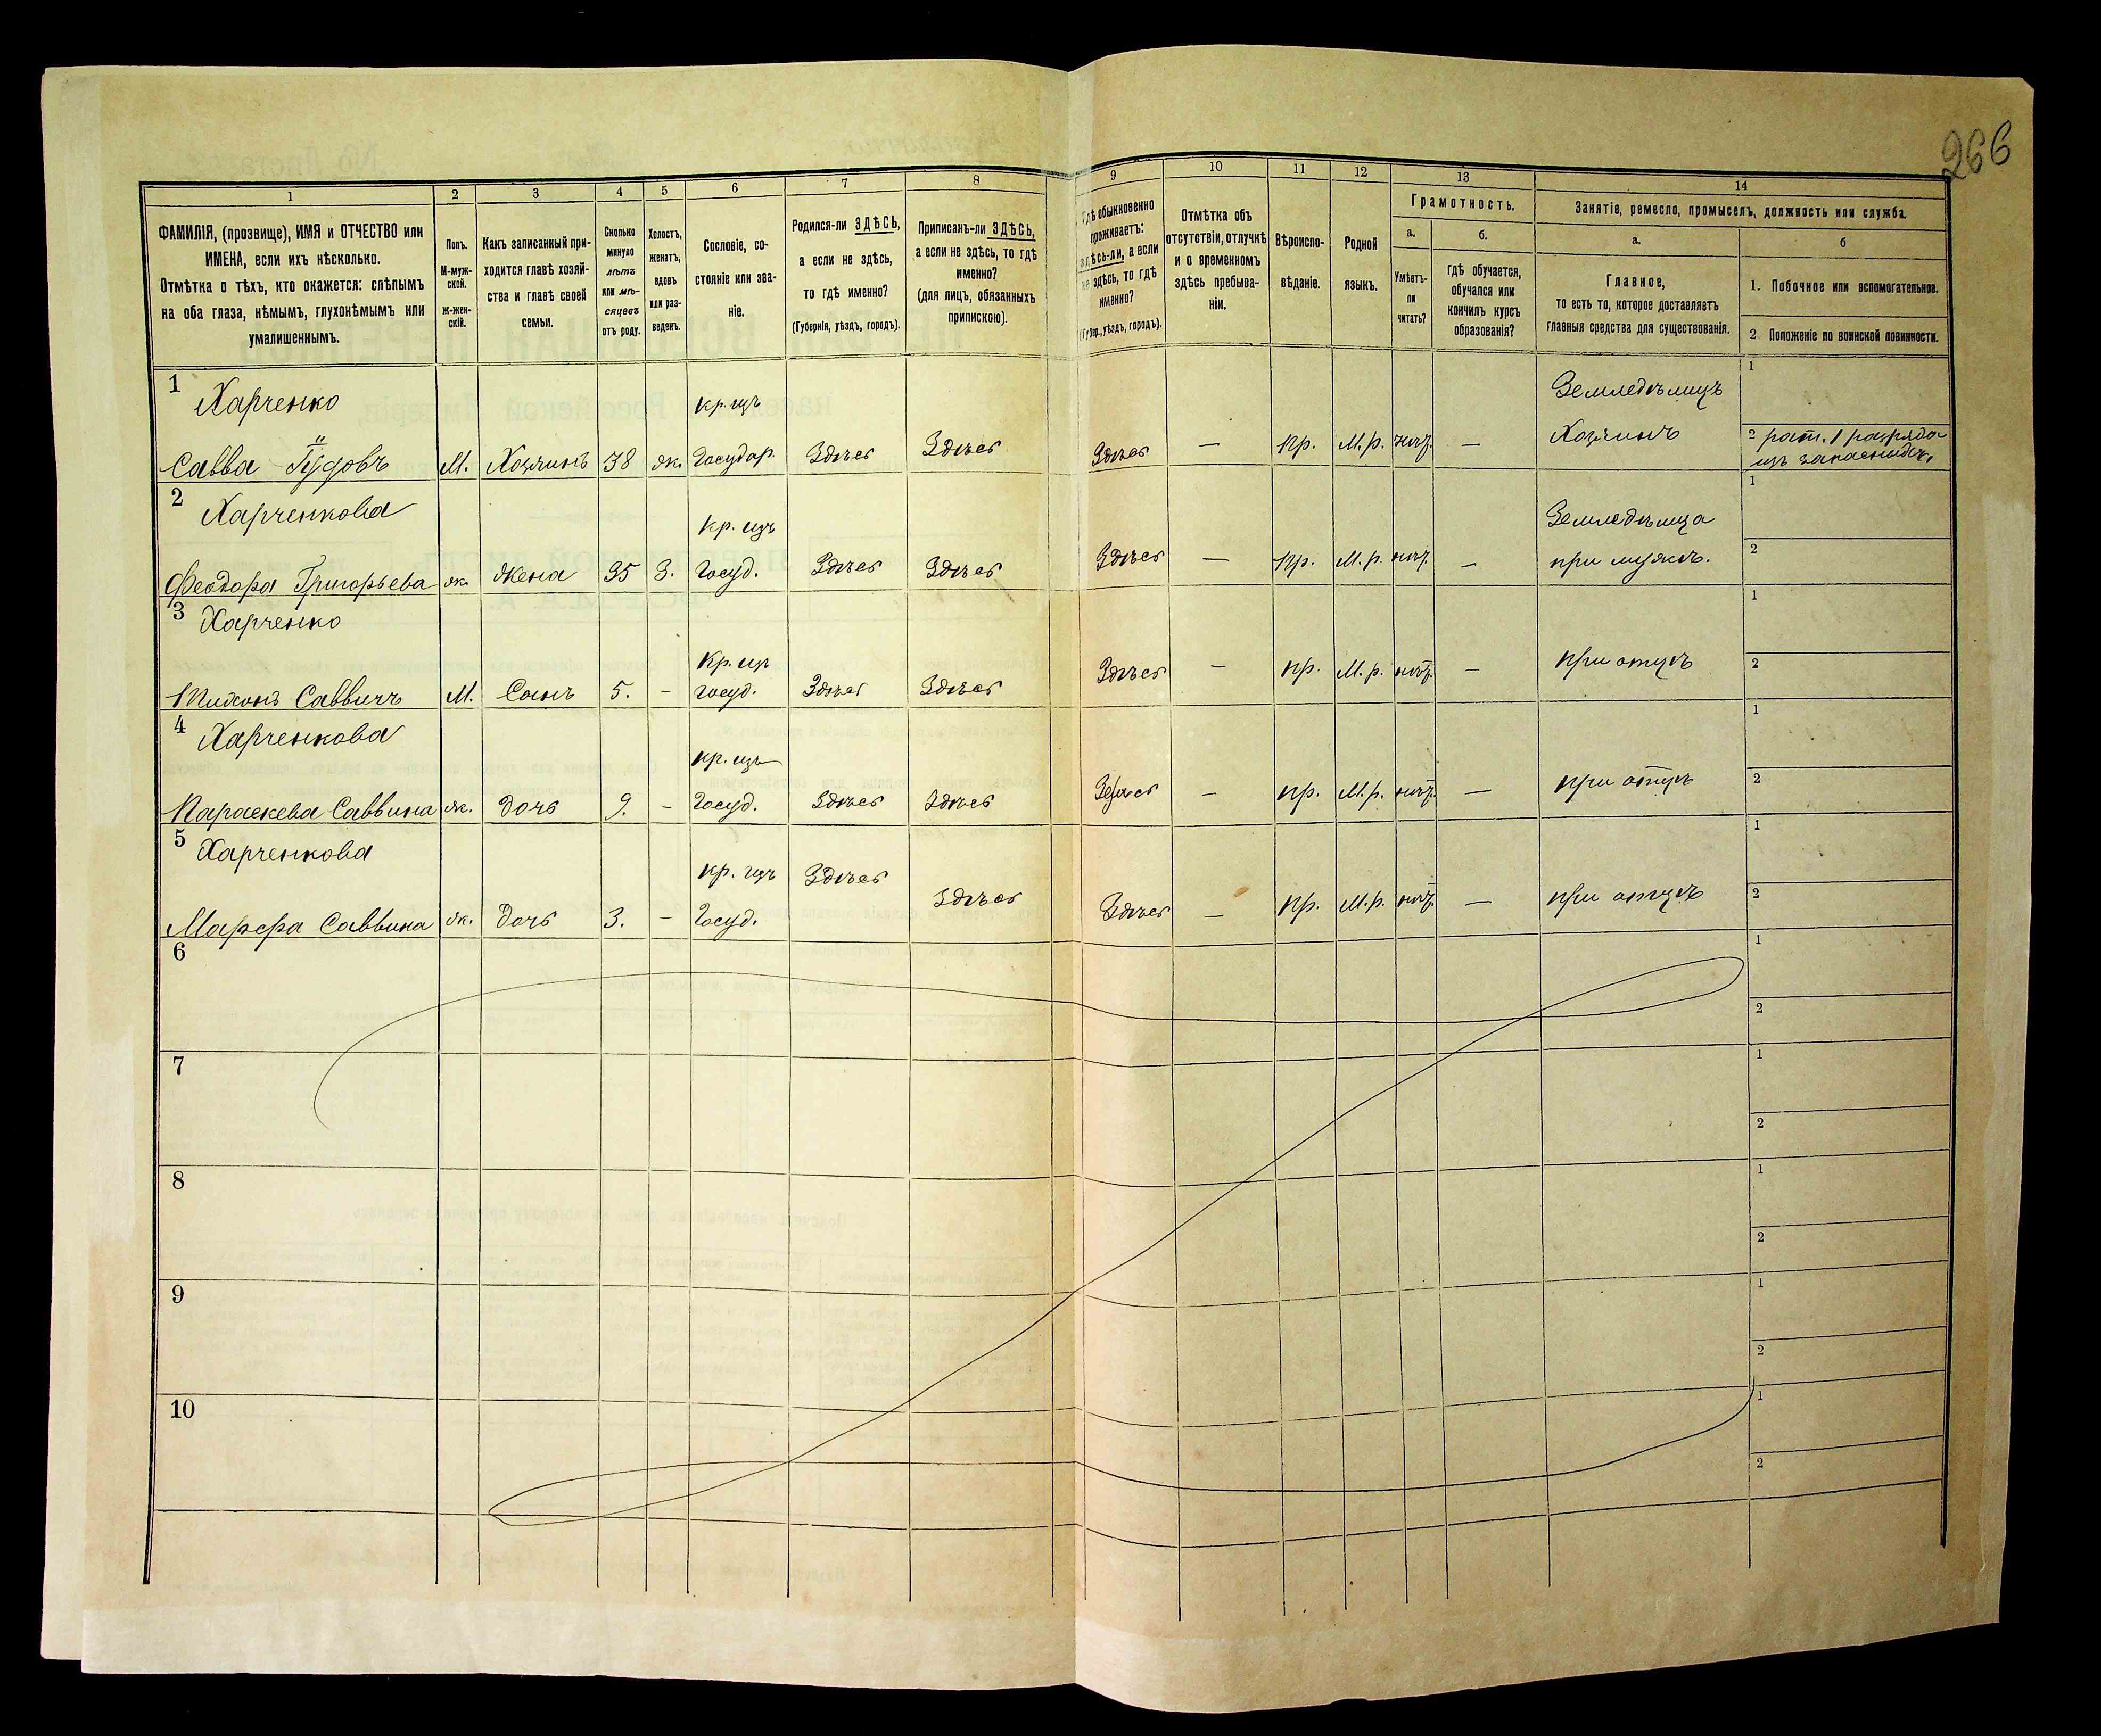 266
1
2
3
4
5
6
7
8
9
10
11
12
13
14
ФАМИЛІЯ, (прозвище), ИМЯ и ОТЧЕСТВО или
ИМЕНА, если ихъ нѣсколько.
Отмѣтка о тѣхъ, кто окажется: слѣпымъ
на оба глаза, нѣмымъ, глухонѣмымъ или
умалишеннымъ.
Полъ.
М-муж-
ской.
Ж-жен-
скій.
Какъ записанный при-
ходится главѣ хозяй-
ства и главѣ своей
семьи.
Сколько
минуло
лѣтъ
или мѣ-
сяцевъ
отъ роду.
Холостъ,
женатъ,
вдовъ
или раз-
веденъ.
Сословіе, со-
стояніе или зва-
ніе.
Родился-ли ЗДѢСЬ,
а если не здѣсь,
то гдѣ именно?
(Губернія, уѣздъ, городъ).
Приписанъ-ли ЗДѢСЬ,
а если не здѣсь, то гдѣ
именно?
(для лицъ, обязанныхъ
припискою).
Гдѣ обыкновенно
проживаетъ:
здѣсь-ли, а если
не здѣсь, то гдѣ
именно?
(Губер., уѣздъ, городъ).
Отмѣтка объ
отсутствіи, отлучкѣ
и о временномъ
здѣсь пребыва-
ніи.
Вѣроиспо-
вѣданіе.
Родной
языкъ.
Грамотность.
а.
Умѣетъ-
ли
читать?
б.
Гдѣ обучается,
обучался или
кончилъ курсъ
образованія?
Занятіе, ремесло, промыселъ, должность или служба.
а.
Главное,
то есть то, которое доставляетъ
главныя средства для существованія.
б
1. Побочное или вспомогательное.
2. Положеніе по воинской повинности.
1
Харченко кр. изъ Земледѣлецъ 1
Савва М. Хозяинъ 38 ж. Государ. Здѣсь Здѣсь Здѣсь — Пр. М.р. нѣт. — Хозяинъ 2 рат. 1 разряда
изъ
2
Харченкова кр. изъ Земледѣлица 1
Феодора Григорьева ж. Жена 35 З. Госуд. Здѣсь Здѣсь Здѣсь — Пр. М.р. нѣт. — при мужѣ. 2
3
Харченко кр. изъ 1
Тихонъ Саввичъ М. Сынъ 5. - госуд. Здѣсь Здѣсь Здѣсь — пр. М.р. нѣт. — при отцѣ 2
4
Харченкова кр. изъ 1
Параскева Саввина ж. дочь 9. - Госуд. Здѣсь Здѣсь Здѣсь — пр. М.р. нѣт. — при отцѣ 2
5
Харченкова кр. изъ 1
Марфа Саввина ж. дочь 3. - Госуд. Здѣсь Здѣсь Здѣсь — пр. М.р. нѣт. — при отцѣ 2
6
1
2
7
1
2
8
1
2
9
1
2
10
1
2